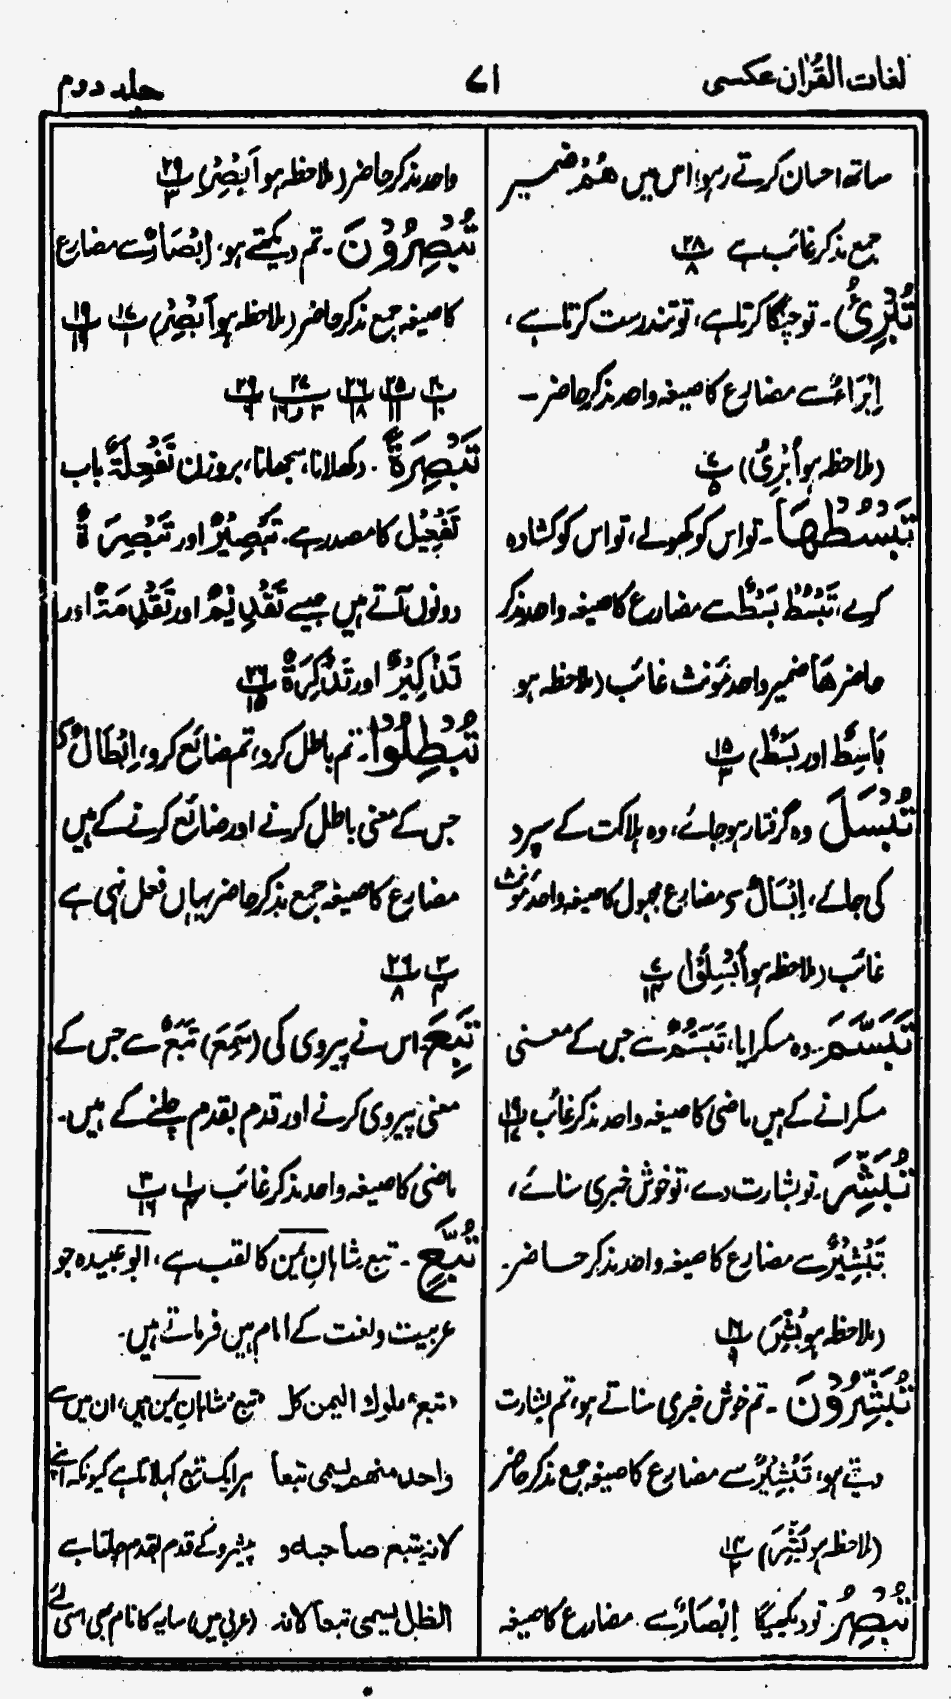 لغات القرآن عکسی
۷۱
جلد دوم
ساتھ احسان کرتے رہو، اس میں ھُمْ ضمیر
جمع مذکر غائب ہے پ۲۸/۸
تُبْرِئُ۔ تو چنگا کرتا ہے، تو تندرست کرتا ہے،
اِبْرَاءٌ سے مضارع کا صیغہ واحد مذکر حاضر۔
(ملاحظہ ہو اُبْرِئُ) پ۷/۵
تَبْسُطْهَا۔ تو اس کو کھولے، تو اس کو کشادہ
کرے، تَبْسُطْ بَسْطٌ سے مضارع کا صیغہ واحد مذکر
حاضر ھَا ضمیر واحد مؤنث غائب (ملاحظہ ہو
بَاسِطٌ اور بَسْطٌ) پ۱۵/۳
تُبْسَلَ وہ گرفتار ہو جائے، وہ ہلاکت کے سپرد
کی جائے، اِبْسَالٌ سے مضارع مجہول کا صیغہ واحد مؤنث
غائب (ملاحظہ ہو اُبْسِلُوْا) پ۷/۱۴
تَبَسَّمَ۔ وہ مسکرایا، تَبَسُّمٌ سے جس کے معنی
مسکرانے کے ہیں ماضی کا صیغہ واحد مذکر غائب پ۱۹/۱۷
تُبَشِّرَ۔ تو بشارت دے، تو خوش خبری سنائے،
تَبْشِيْرٌ سے مضارع کا صیغہ واحد مذکر حاضر۔
(ملاحظہ ہو بُشِّرَ) پ۱۶/۹
تُبَشِّرُوْنَ۔ تم خوش خبری سناتے ہو، تم بشارت
دیتے ہو، تَبْشِيْرٌ سے مضارع کا صیغہ جمع مذکر حاضر
(ملاحظہ ہو بُشِّرَ) پ۱۴/۴
تُبْصِرُ۔ تو دیکھیگا اِبْصَارٌ سے مضارع کا صیغہ
واحد مذکر حاضر (ملاحظہ ہو اَبْصِرْ) پ۲۹/۳
تُبْصِرُوْنَ۔ تم دیکھتے ہو، اِبْصَارٌ سے مضارع
کا صیغہ جمع مذکر حاضر (ملاحظہ ہو اَبْصِرْ) پ۱۷/۱ پ۱۹/۱۹
پ۲۰/۱۰ پ۲۵/۱۱ پ۲۶/۱۸ پ۲۷/۳ و ۱۶ پ۲۹/۶
تَبْصِرَةً۔ دکھلانا، سمجھانا، بروزن تَفْعِلَةٌ باب
تَفْعِيْل کا مصدر ہے۔ تَبْصِيْرٌ اور تَبْصِرَةٌ
دونوں آتے ہیں جیسے تَقْدِيْمٌ اور تَقْدِمَةٌ اور
تَذْكِيْرٌ اور تَذْكِرَةٌ پ۲۶/۱۵
تُبْطِلُوْا۔ تم باطل کرو، تم ضائع کرو، اِبْطَالٌ سے
جس کے معنی باطل کرنے اور ضائع کرنے کے ہیں
مضارع کا صیغہ جمع مذکر حاضر یہاں فعل نہی ہے
پ۳/۴ پ۲۶/۸
تَبِعَ۔ اس نے پیروی کی (سَمِعَ) تَبَعٌ سے جس کے
معنی پیروی کرنے اور قدم بقدم چلنے کے ہیں۔
ماضی کا صیغہ واحد مذکر غائب پ۱/۴ پ۳/۱۶
تُبَّعٍ۔ تبع شاہانِ یمن کا لقب ہے، ابوعبیدہ جو
عربیت و لغت کے امام ہیں فرماتے ہیں۔
"تبع" ملوك اليمن كل "تبع" شاہانِ یمن ہیں، ان میں سے
واحد منهم يسمى تبعا ہر ایک تبع کہلاتا ہے کیونکہ اپنے
لانه يتبع صاحبه و پیشرو کے قدم بقدم چلتا ہے
الظل يسمى تبعا لانه (عربی میں) سایہ کا نام بھی اسی لئے